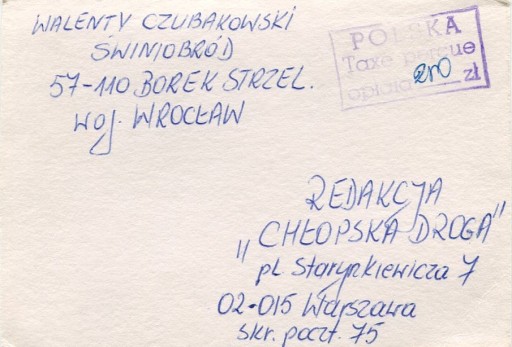 WALENTY CZUBAKOWSKI
SWINIOBRÓD
57-110 BOREK STRZEL.
woj. WROCŁAW
POLSKA
Taxe perçue
opłata 200 zł
REDAKCJA
„CHŁOPSKA DROGA"
pl. Starynkiewicza 7
02-015 Warszawa
skr. poczt. 75